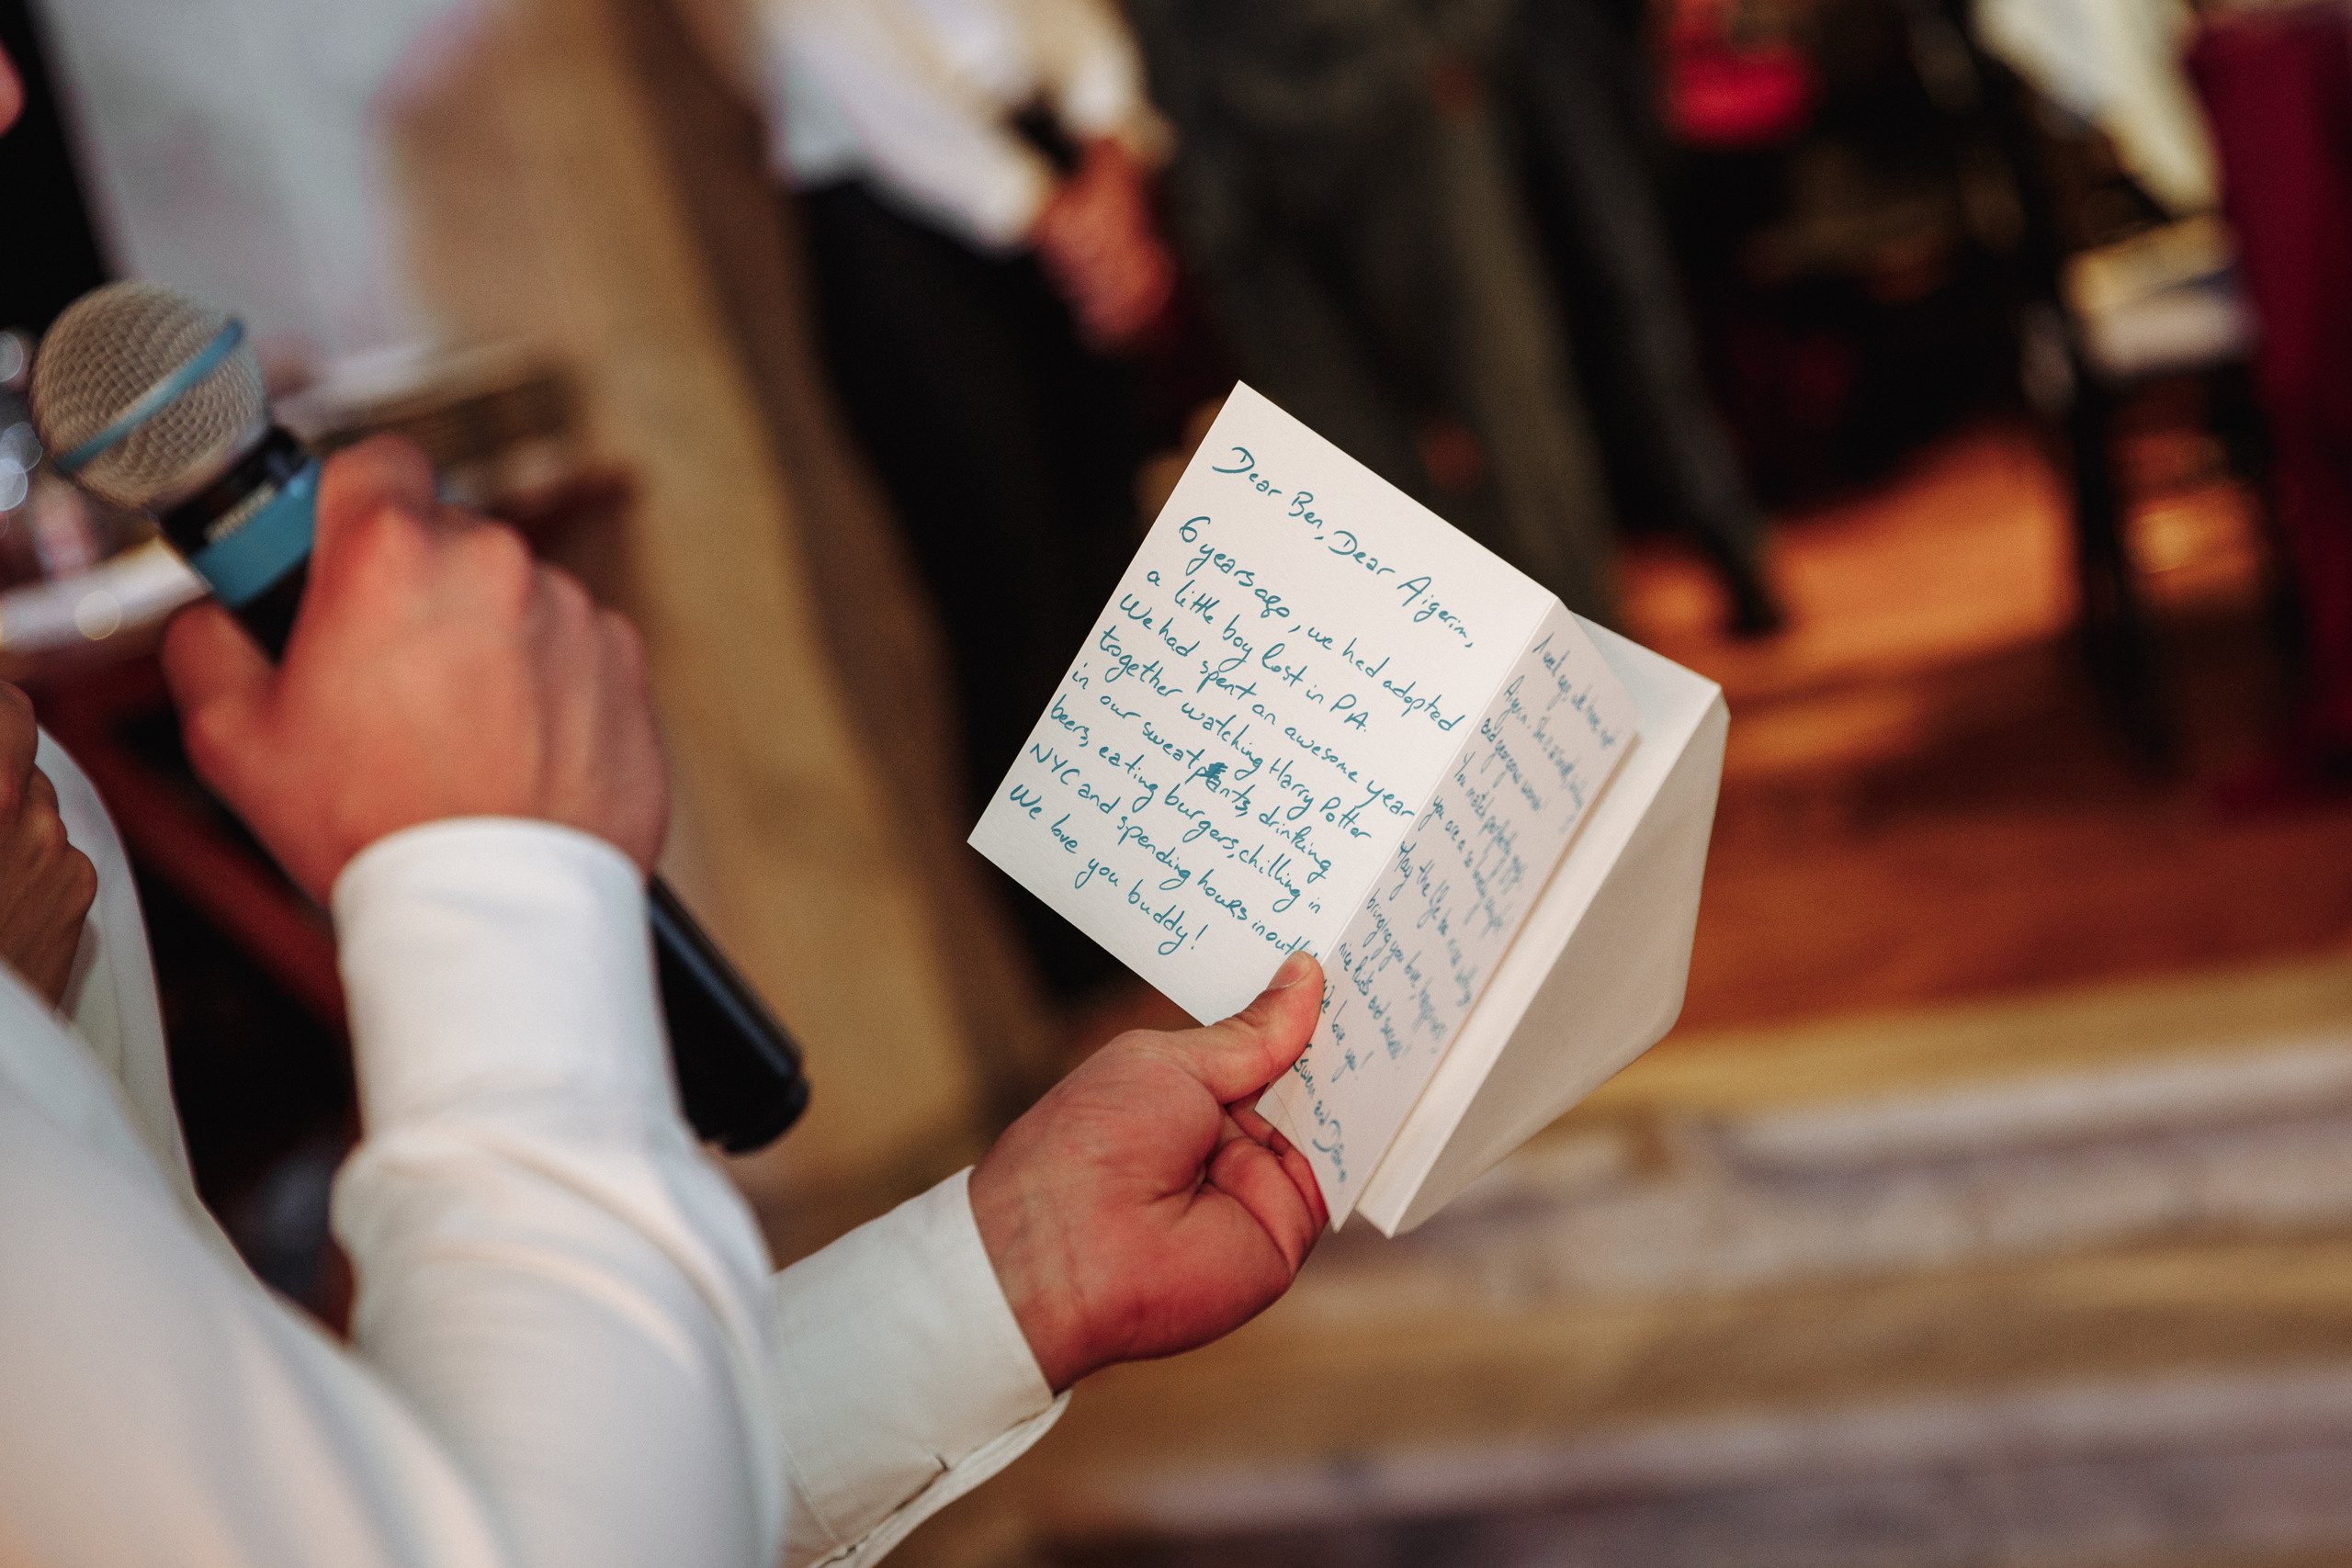 Dear Ben, Dear Aigerim,
6 years ago, we had adopted
a little boy lost in PA.
We had spent an awesome year
together watching Harry Potter
in our sweatpants, drinking
beers, eating burgers, chilling in
NYC and spending hours in out
We love you buddy!
1 week ago, we have met
Aigerim. She is a
and gorgeous woman!
You match perfectly
you are a so lovely couple!
May the life be nice
bringing you love, happiness,
nice kids and
We love you!
and